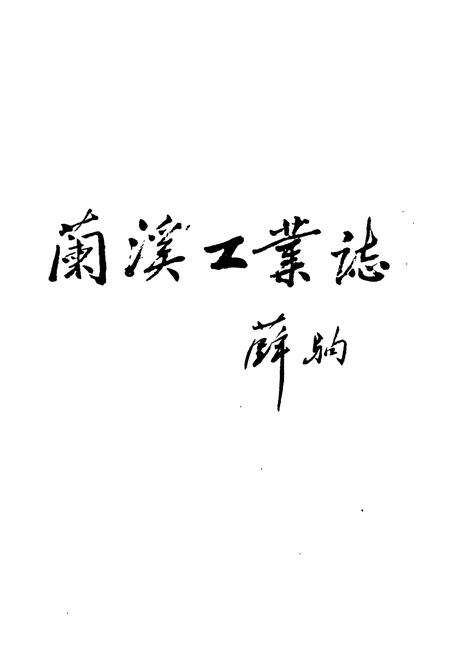 蘭溪工業誌
薛驹